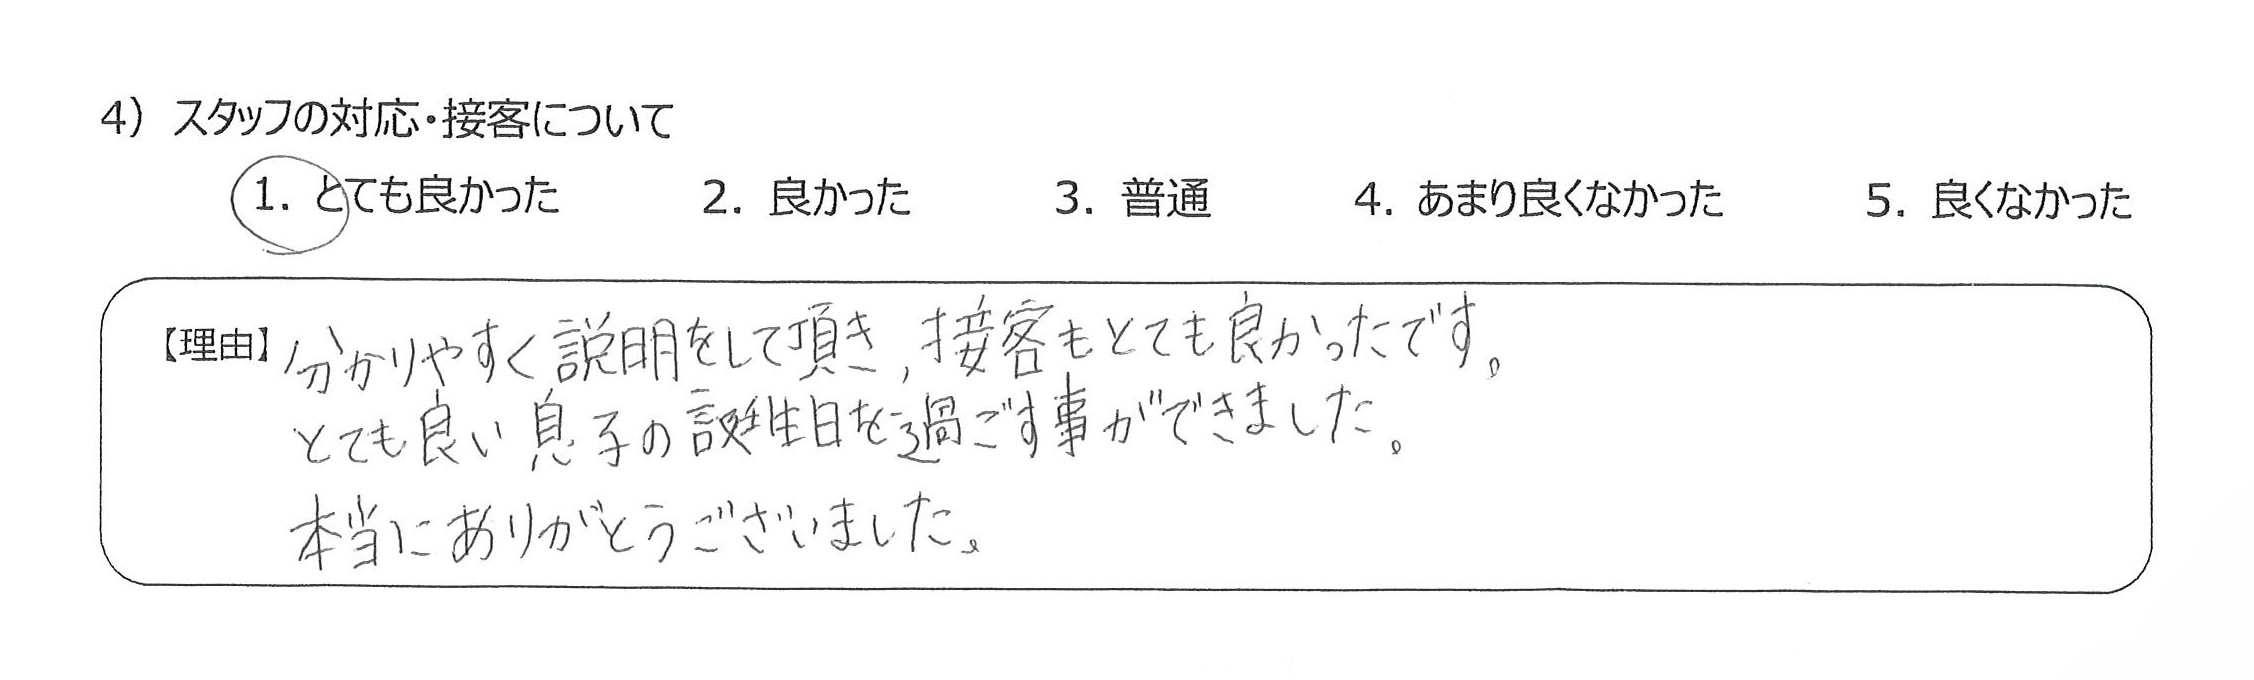 4) スタッフの対応・接客について
1. とても良かった 2. 良かった 3. 普通 4. あまり良くなかった 5. 良くなかった
【理由】分かりやすく説明をして頂き,接客もとても良かったです。
とても良い息子の誕生日を過ごす事ができました。
本当にありがとうございました。